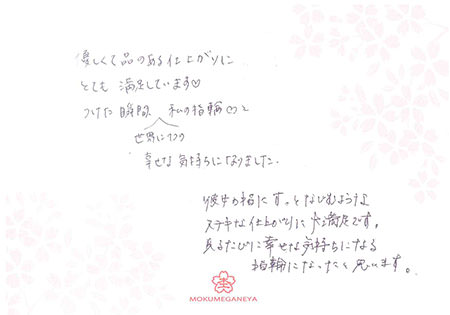 優しくて品のある仕上がりに
とても満足しています♡
つけた瞬間、私の指輪♡と
世界に1つの
幸せな気持ちになりました。
彼女の指にすっとなじむような
ステキな仕上がりに大満足です。
見るたびに幸せな気持ちになる
指輪になったと思います。
MOKUMEGANEYA